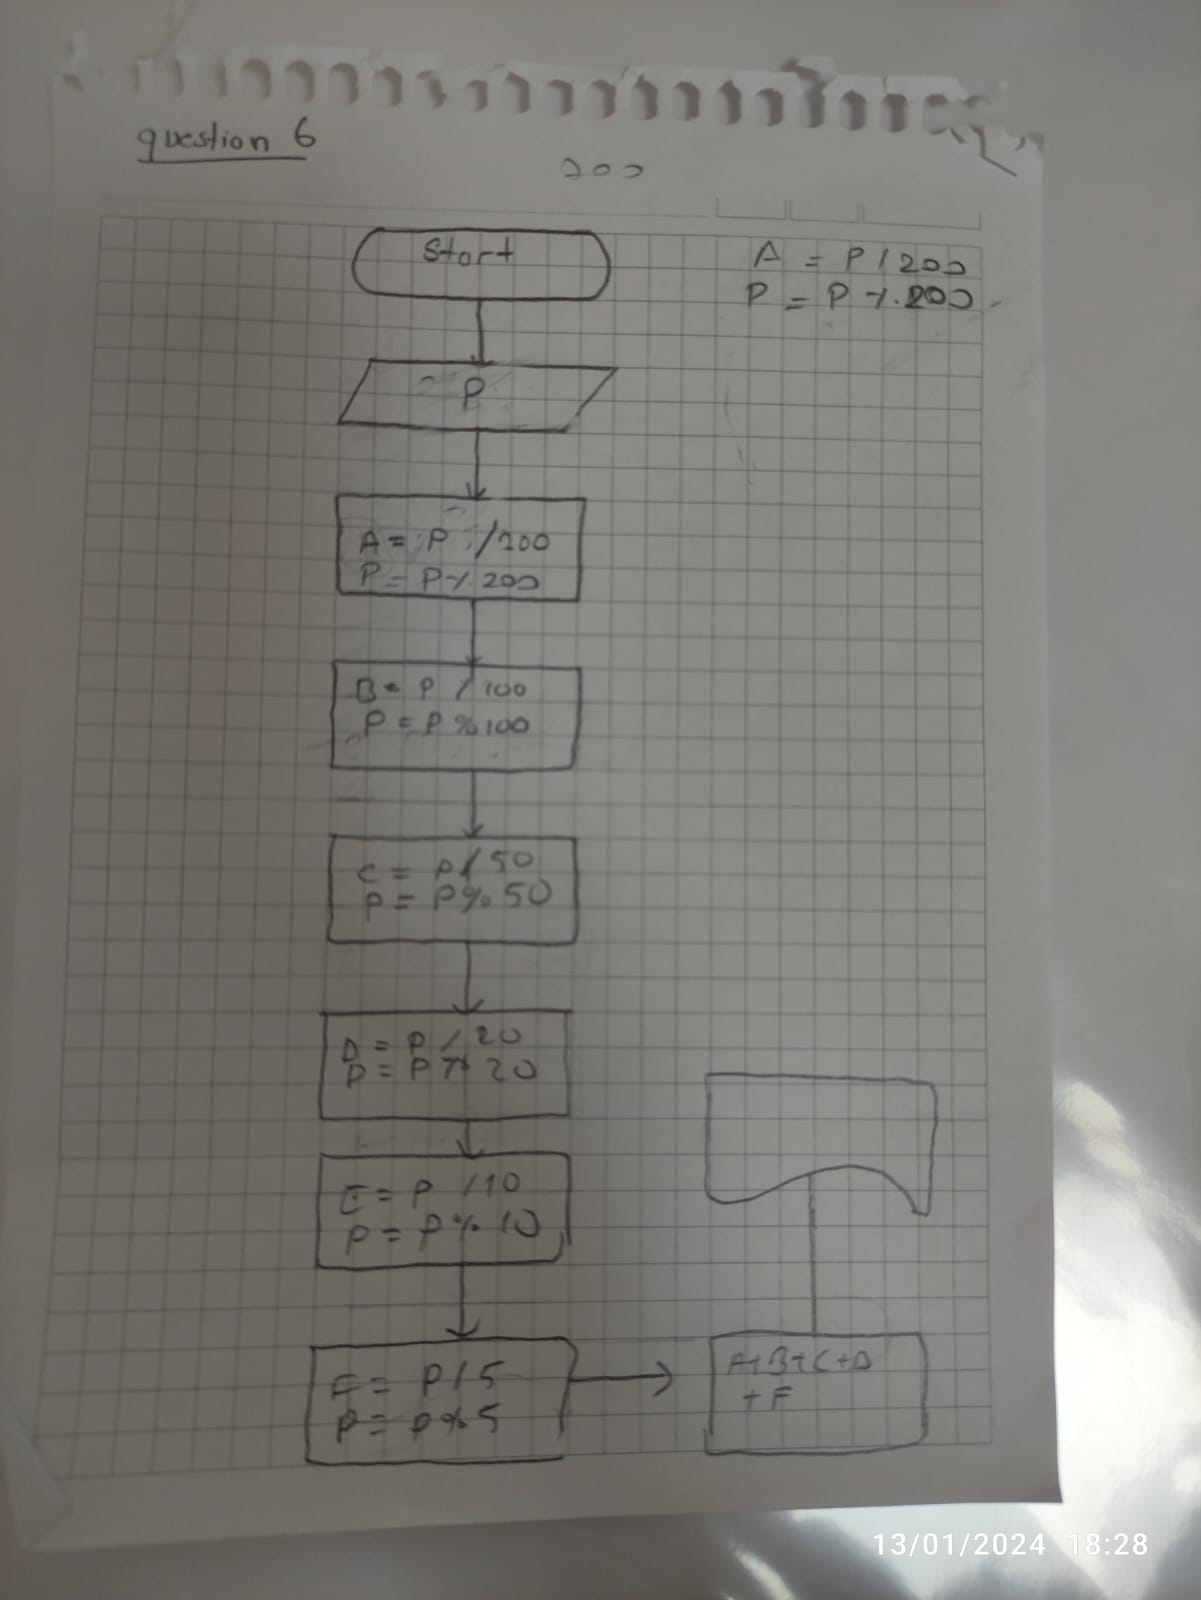 question 6
200
Start
A = P / 200
P = P % 200
P
A = P / 200
P = P % 200
B = P / 100
P = P % 100
C = P / 50
P = P % 50
D = P / 20
P = P % 20
E = P / 10
P = P % 10
F = P / 5
P = P % 5
A+B+C+D
+F
13/01/2024 18:28